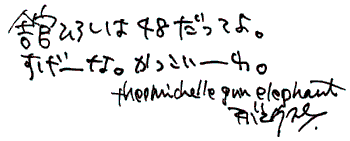 舘ひろしは48だってよ。
すげーな。かっこいーわ。
thee michelle gun elephant